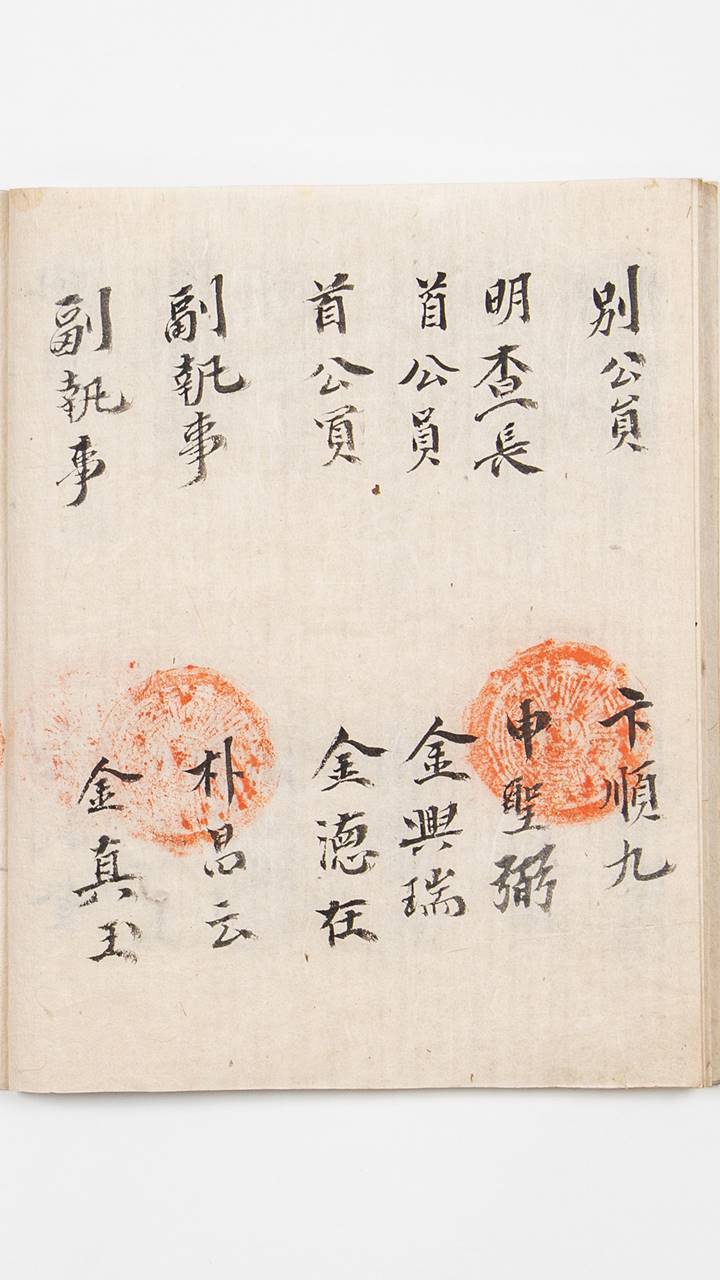 別公員 卞順九
明查長 申聖弼
首公員 金興瑞
首公員 金德在
副執事 朴昌云
副執事 金真玉